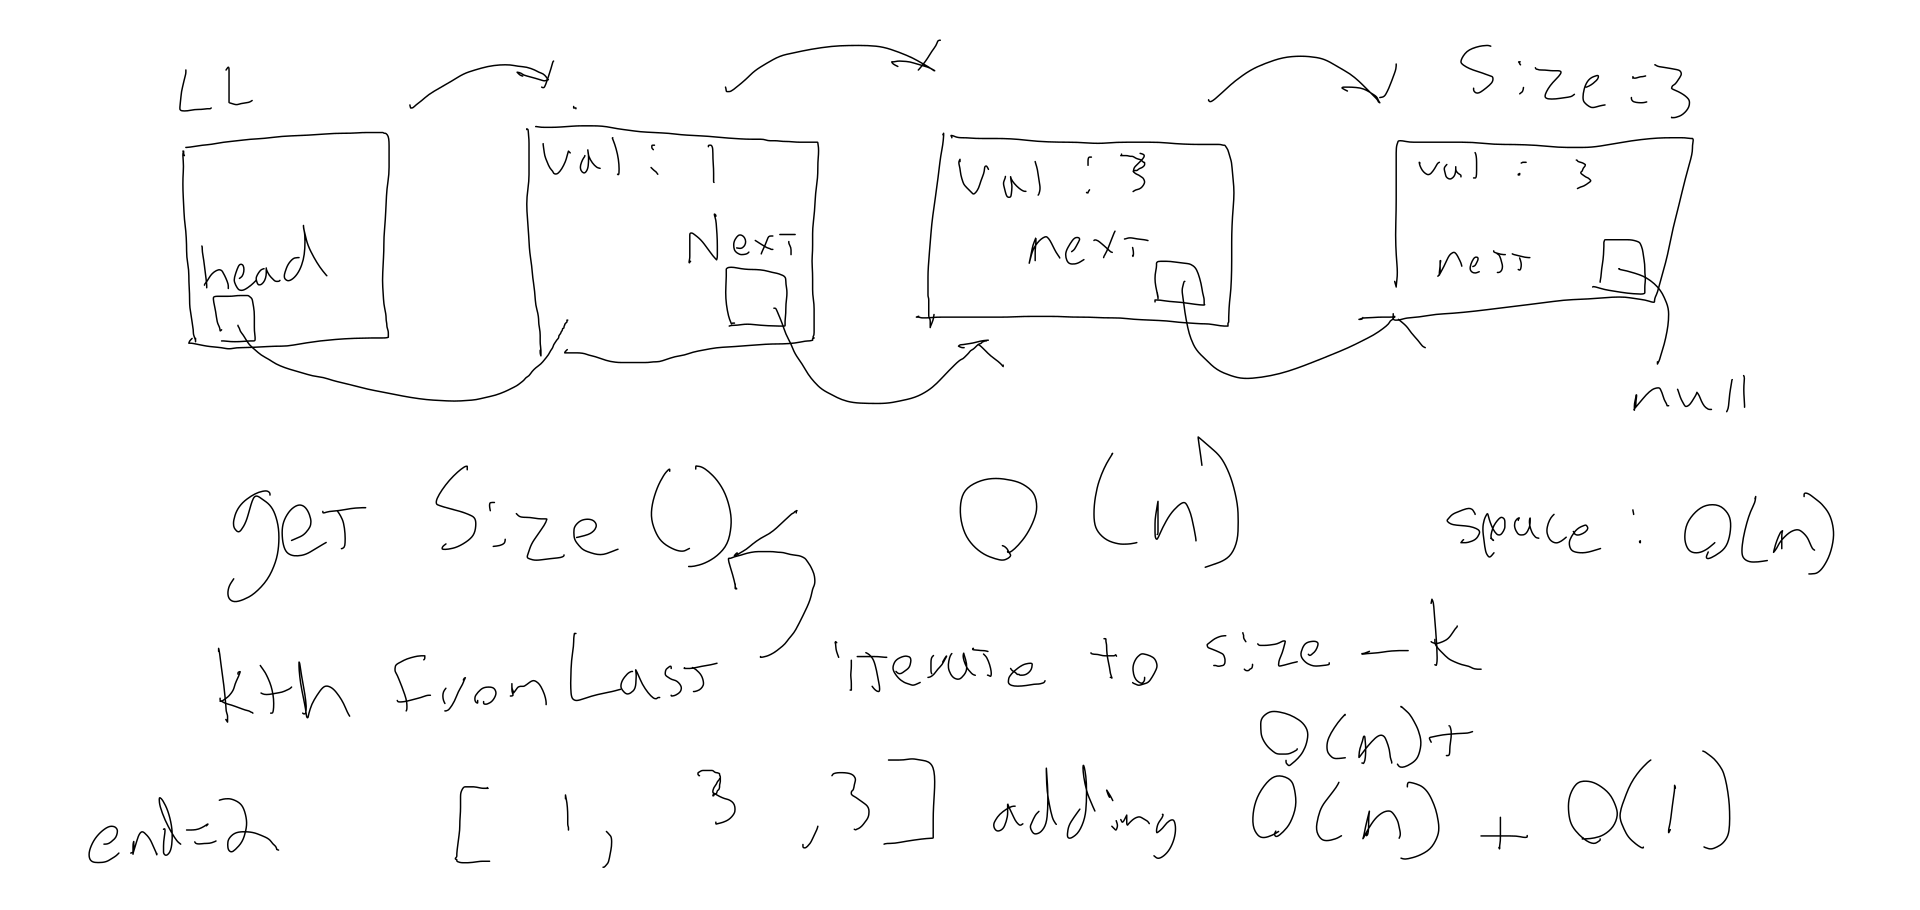 LL
Size = 3
val : 1
val : 3
val : 3
head
Next
next
next
null
get Size () O(n) space : O(n)
kth From Last iterate to size - k
O(n) +
end=2 [ 1, 3 , 3 ] adding O(n) + O(1)